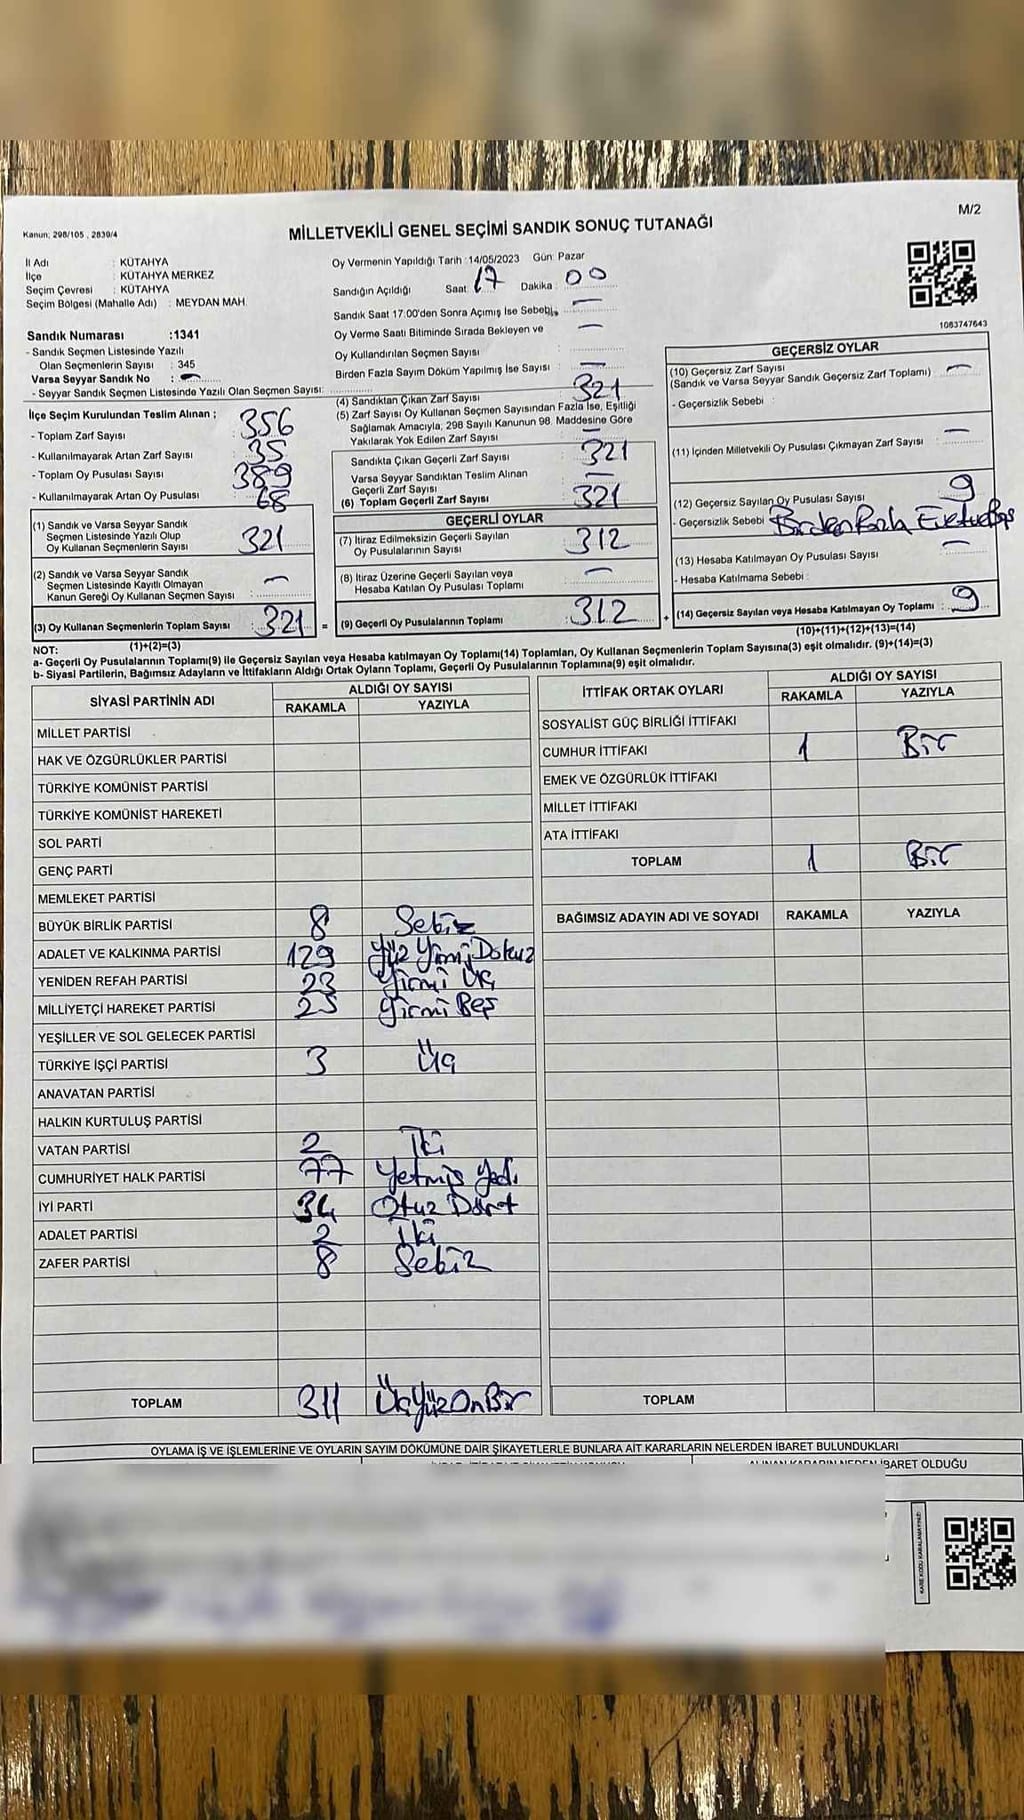 M/2
Kanun; 298/105 , 2839/4
MİLLETVEKİLİ GENEL SEÇİMİ SANDIK SONUÇ TUTANAĞI
İl Adı : KÜTAHYA
İlçe : KÜTAHYA MERKEZ
Seçim Çevresi : KÜTAHYA
Seçim Bölgesi (Mahalle Adı) : MEYDAN MAH.
Sandık Numarası :1341
- Sandık Seçmen Listesinde Yazılı
Olan Seçmenlerin Sayısı : 345
Varsa Seyyar Sandık No : —
- Seyyar Sandık Seçmen Listesinde Yazılı Olan Seçmen Sayısı:
Oy Vermenin Yapıldığı Tarih :14/05/2023 Gün: Pazar
Sandığın Açıldığı Saat: 17 Dakika : 00
Sandık Saat 17:00'den Sonra Açımış İse Sebebi: —
Oy Verme Saati Bitiminde Sırada Bekleyen ve —
Oy Kullandırılan Seçmen Sayısı
Birden Fazla Sayım Döküm Yapılmış İse Sayısı : —
1083747643
İlçe Seçim Kurulundan Teslim Alınan ;
- Toplam Zarf Sayısı : 356
- Kullanılmayarak Artan Zarf Sayısı : 35
- Toplam Oy Pusulası Sayısı : 389
- Kullanılmayarak Artan Oy Pusulası : 68
(1) Sandık ve Varsa Seyyar Sandık
Seçmen Listesinde Yazılı Olup
Oy Kullanan Seçmenlerin Sayısı : 321
(2) Sandık ve Varsa Seyyar Sandık
Seçmen Listesinde Kayıtlı Olmayan
Kanun Gereği Oy Kullanan Seçmen Sayısı : —
(3) Oy Kullanan Seçmenlerin Toplam Sayısı : 321 =
(1)+(2)=(3)
(4) Sandıktan Çıkan Zarf Sayısı : 321
(5) Zarf Sayısı Oy Kullanan Seçmen Sayısından Fazla İse, Eşitliği
Sağlamak Amacıyla; 298 Sayılı Kanunun 98. Maddesine Göre
Yakılarak Yok Edilen Zarf Sayısı : —
Sandıkta Çıkan Geçerli Zarf Sayısı : 321
Varsa Seyyar Sandıktan Teslim Alınan
Geçerli Zarf Sayısı : —
(6) Toplam Geçerli Zarf Sayısı : 321
GEÇERLİ OYLAR
(7) İtiraz Edilmeksizin Geçerli Sayılan
Oy Pusulalarının Sayısı : 312
(8) İtiraz Üzerine Geçerli Sayılan veya
Hesaba Katılan Oy Pusulası Toplamı : —
(9) Geçerli Oy Pusulalarının Toplamı : 312 +
GEÇERSİZ OYLAR
(10) Geçersiz Zarf Sayısı : —
(Sandık ve Varsa Seyyar Sandık Geçersiz Zarf Toplamı)
- Geçersizlik Sebebi :
(11) İçinden Milletvekili Oy Pusulası Çıkmayan Zarf Sayısı : —
(12) Geçersiz Sayılan Oy Pusulası Sayısı : 9
- Geçersizlik Sebebi : Birden Fazla
(13) Hesaba Katılmayan Oy Pusulası Sayısı : —
- Hesaba Katılmama Sebebi :
(14) Geçersiz Sayılan veya Hesaba Katılmayan Oy Toplamı : 9
(10)+(11)+(12)+(13)=(14)
NOT:
a- Geçerli Oy Pusulalarının Toplamı(9) ile Geçersiz Sayılan veya Hesaba katılmayan Oy Toplamı(14) Toplamları, Oy Kullanan Seçmenlerin Toplam Sayısına(3) eşit olmalıdır. (9)+(14)=(3)
b- Siyasi Partilerin, Bağımsız Adayların ve İttifakların Aldığı Ortak Oyların Toplamı, Geçerli Oy Pusulalarının Toplamına(9) eşit olmalıdır.
SİYASİ PARTİNİN ADI ALDIĞI OY SAYISI
RAKAMLA YAZIYLA
MİLLET PARTİSİ
HAK VE ÖZGÜRLÜKLER PARTİSİ
TÜRKİYE KOMÜNİST PARTİSİ
TÜRKİYE KOMÜNİST HAREKETİ
SOL PARTİ
GENÇ PARTİ
MEMLEKET PARTİSİ
BÜYÜK BİRLİK PARTİSİ 8 Sekiz
ADALET VE KALKINMA PARTİSİ 129 Yüz Yirmi Dokuz
YENİDEN REFAH PARTİSİ 23 Yirmi Üç
MİLLİYETÇİ HAREKET PARTİSİ 25 Yirmi Beş
YEŞİLLER VE SOL GELECEK PARTİSİ
TÜRKİYE İŞÇİ PARTİSİ 3 Üç
ANAVATAN PARTİSİ
HALKIN KURTULUŞ PARTİSİ
VATAN PARTİSİ 2 İki
CUMHURİYET HALK PARTİSİ 77 Yetmiş Yedi
İYİ PARTİ 34 Otuz Dört
ADALET PARTİSİ 2 İki
ZAFER PARTİSİ 8 Sekiz
TOPLAM 311 ÜçYüzOnBir
İTTİFAK ORTAK OYLARI ALDIĞI OY SAYISI
RAKAMLA YAZIYLA
SOSYALİST GÜÇ BİRLİĞİ İTTİFAKI
CUMHUR İTTİFAKI 1 Bir
EMEK VE ÖZGÜRLÜK İTTİFAKI
MİLLET İTTİFAKI
ATA İTTİFAKI
TOPLAM 1 Bir
BAĞIMSIZ ADAYIN ADI VE SOYADI RAKAMLA YAZIYLA
TOPLAM
OYLAMA İŞ VE İŞLEMLERİNE VE OYLARIN SAYIM DÖKÜMÜNE DAİR ŞİKAYETLERLE BUNLARA AİT KARARLARIN NELERDEN İBARET BULUNDUKLARI
ALINAN KARARIN NEDEN İBARET OLDUĞU
KARE KODU KARALAMAYINIZ!